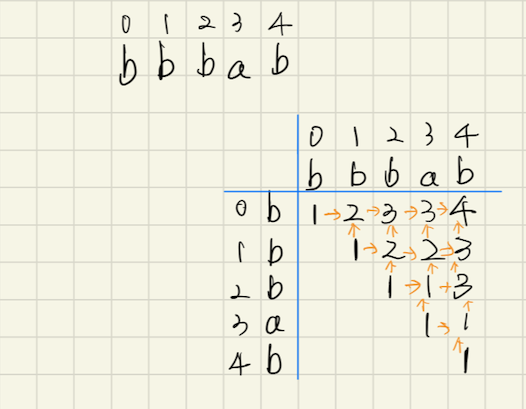 0 1 2 3 4
b b b a b
0 1 2 3 4
b b b a b
0 b 1 → 2 → 3 → 3 → 4
1 b 1 → 2 → 2 → 3
2 b 1 → 1 → 3
3 a 1 → 1
4 b 1